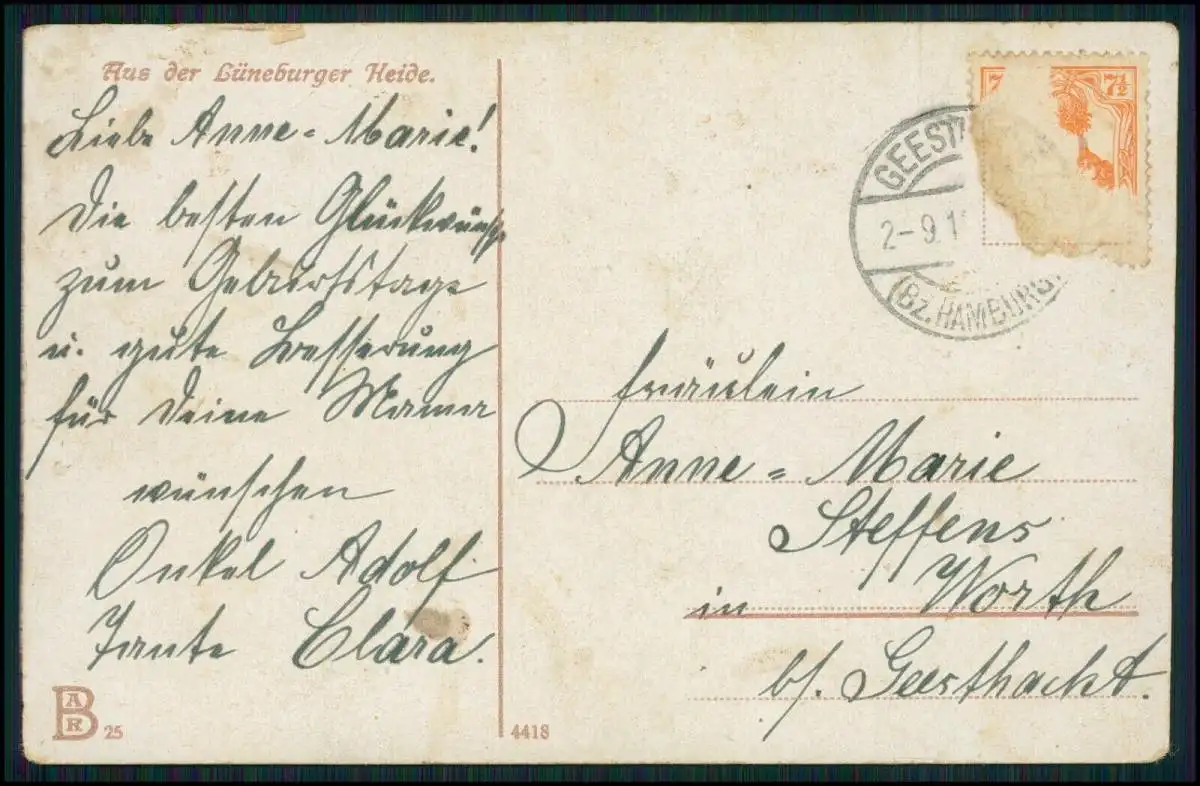 Aus der Lüneburger Heide.
Liebe Anne-Marie!
Die besten Glückwünsche
zum Geburtstage
u. gute Besserung
für Deine Mama
wünschen
Onkel Adolf
Tante Clara.
BAR 25
4418
7½
GEEST
2-9.1
(BZ. HAMBURG)
Fräulein
Anne-Marie
Steffens
in Worth
b/. Geesthacht.